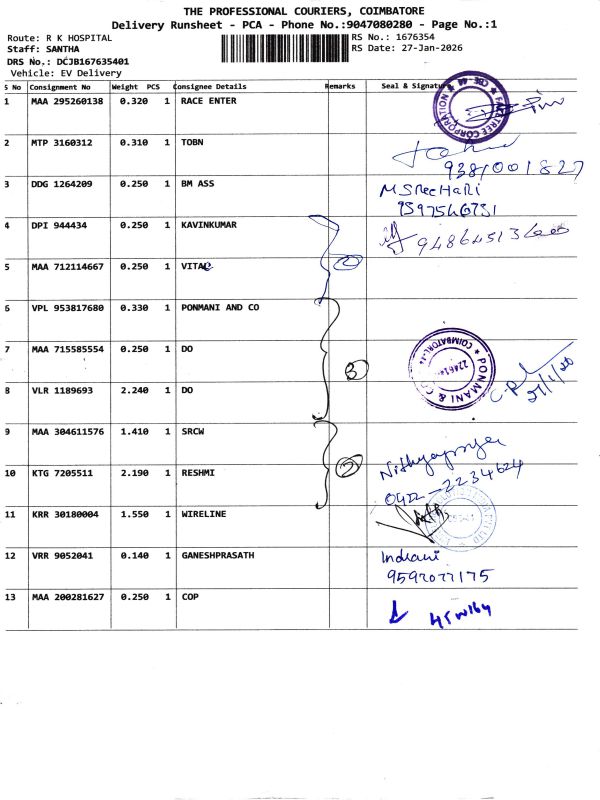 THE PROFESSIONAL COURIERS, COIMBATORE
Delivery Runsheet - PCA - Phone No.:9047080280 - Page No.:1
Route: R K HOSPITAL RS No.: 1676354
Staff: SANTHA RS Date: 27-Jan-2026
DRS No.: DCJB167635401
Vehicle: EV Delivery
S No Consignment No Weight PCS Consignee Details Remarks Seal & Signature
1 MAA 295260138 0.320 1 RACE ENTER
2 MTP 3160312 0.310 1 TOBN
9381001827
3 DDG 1264209 0.250 1 BM ASS M SReeHaRi
4 DPI 944434 0.250 1 KAVINKUMAR
5 MAA 712114667 0.250 1 VITAL
6 VPL 953817680 0.330 1 PONMANI AND CO
7 MAA 715585554 0.250 1 DO 3 PONMANI & CO COIMBATORE
8 VLR 1189693 2.240 1 DO
9 MAA 304611576 1.410 1 SRCW
10 KTG 7205511 2.190 1 RESHMI 0422-2234624
11 KRR 30180004 1.550 1 WIRELINE
12 VRR 9052041 0.140 1 GANESHPRASATH Indrani
13 MAA 200281627 0.250 1 COP